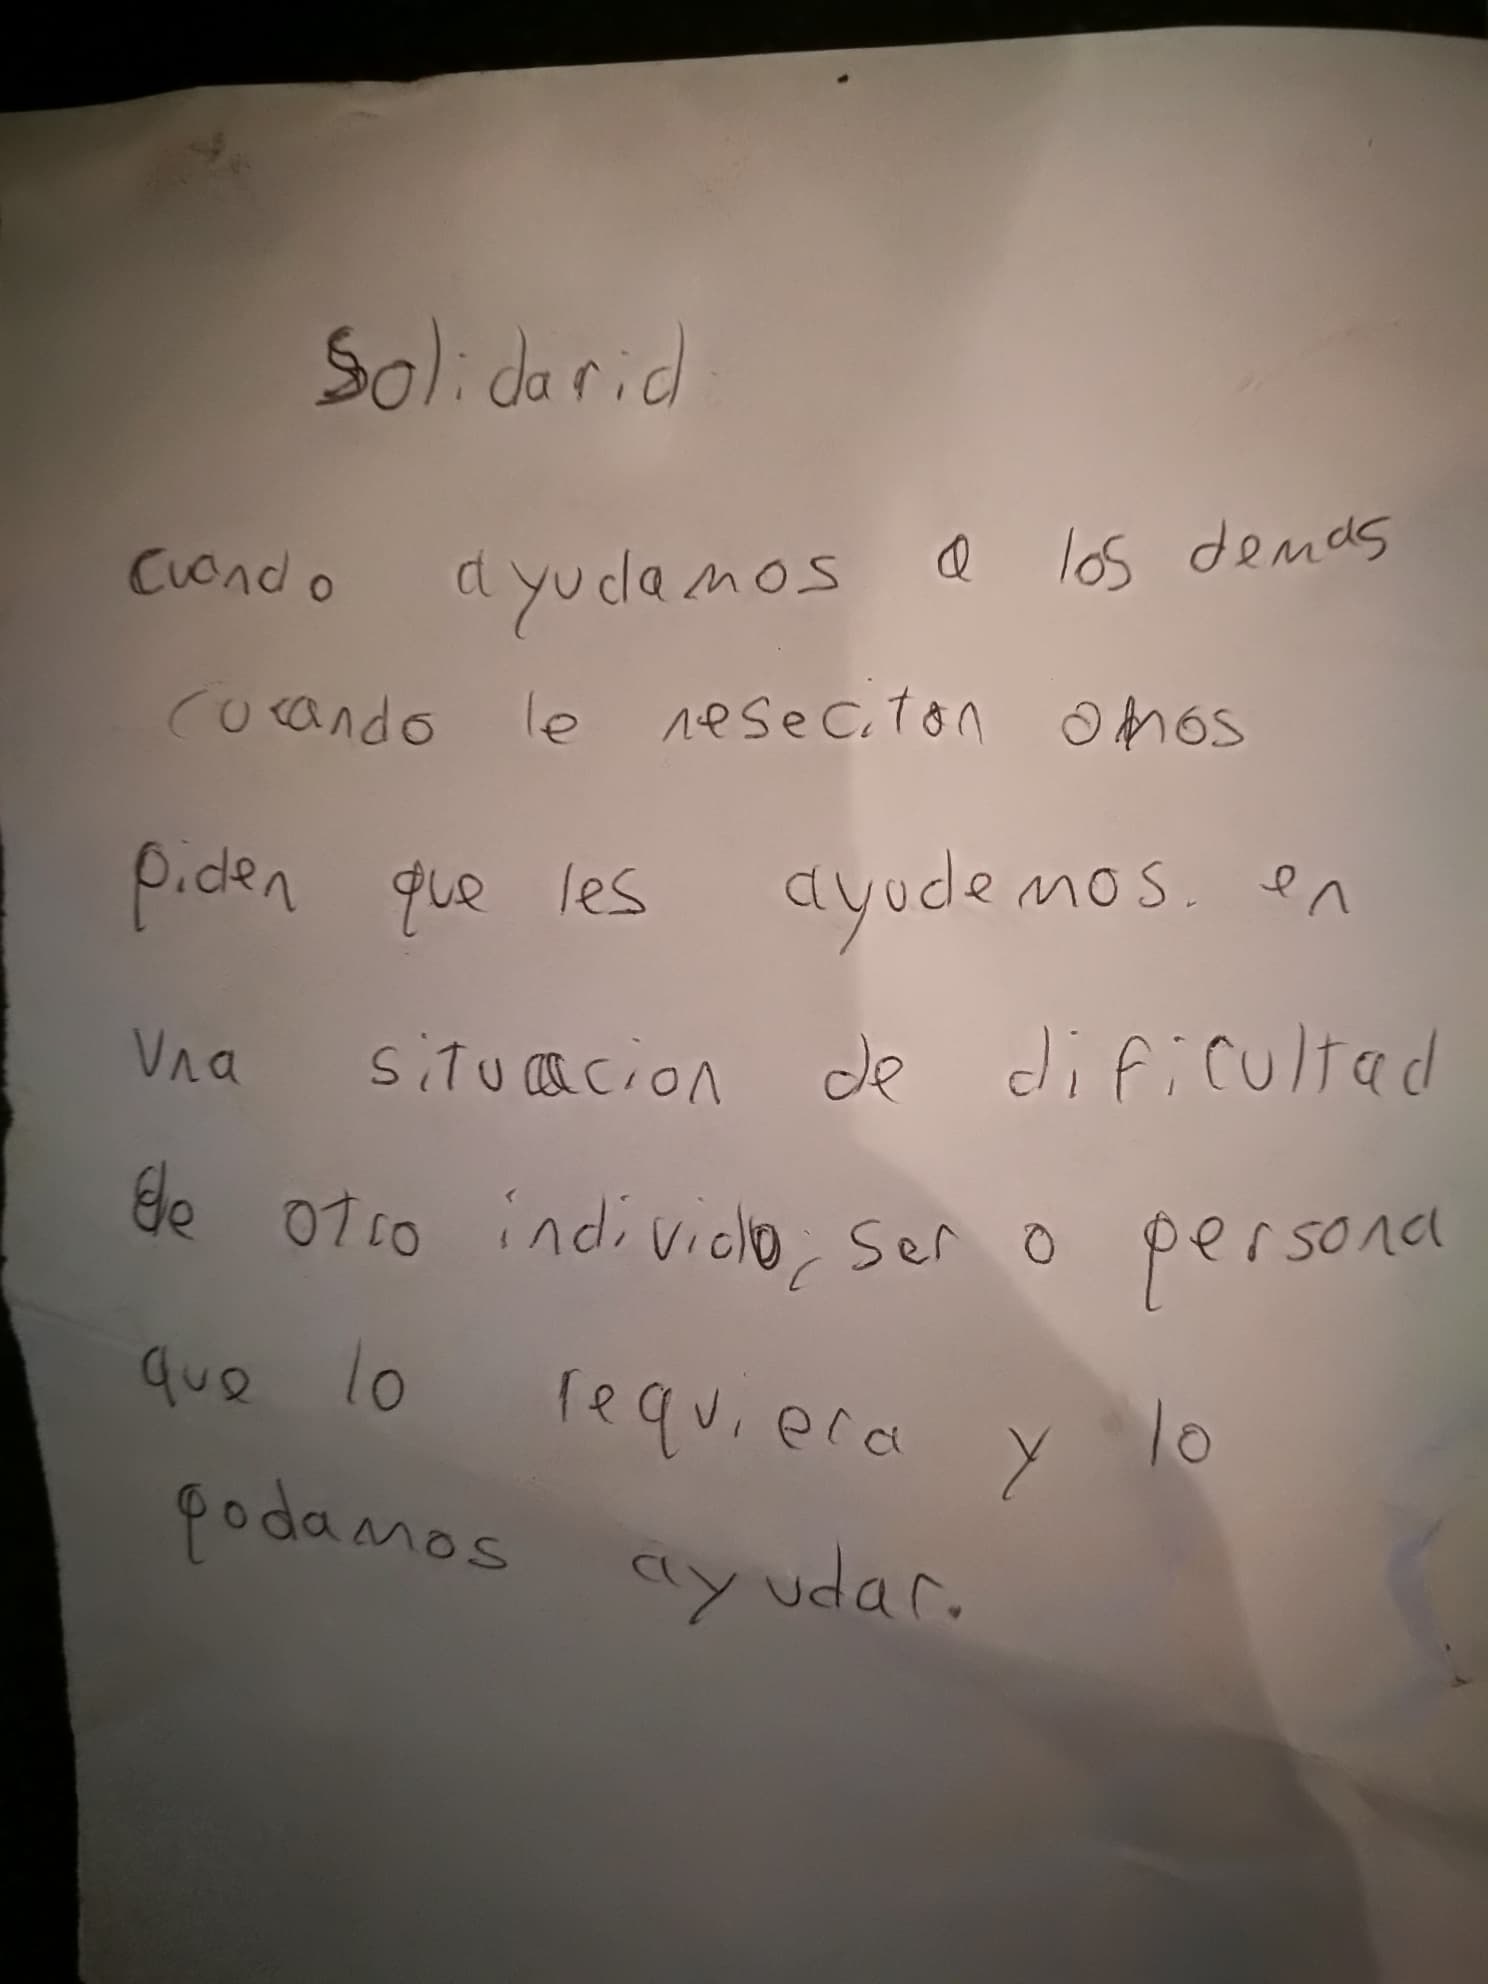 Solidarid
cuando ayudamos a los demas
cucando le neseciton
piden que les ayudemos. en
una situacion de dificultad
de otro individo, ser o persona
que lo requiera y lo
podamos ayudar.